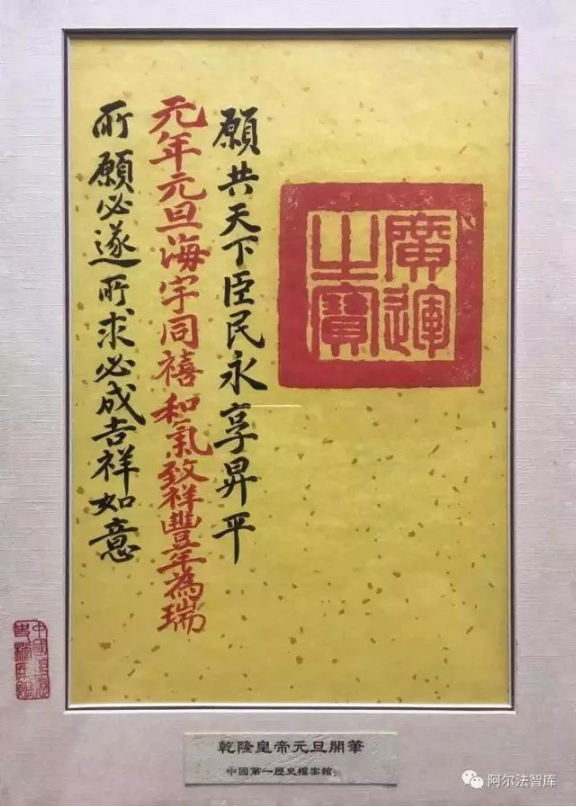 廣運
之寶
願共天下臣民永享昇平
元年元旦海宇同禧和氣致祥豐年為瑞
所願必遂所求必成吉祥如意
乾隆皇帝元旦開筆
中國第一歷史檔案館
阿尔法智库